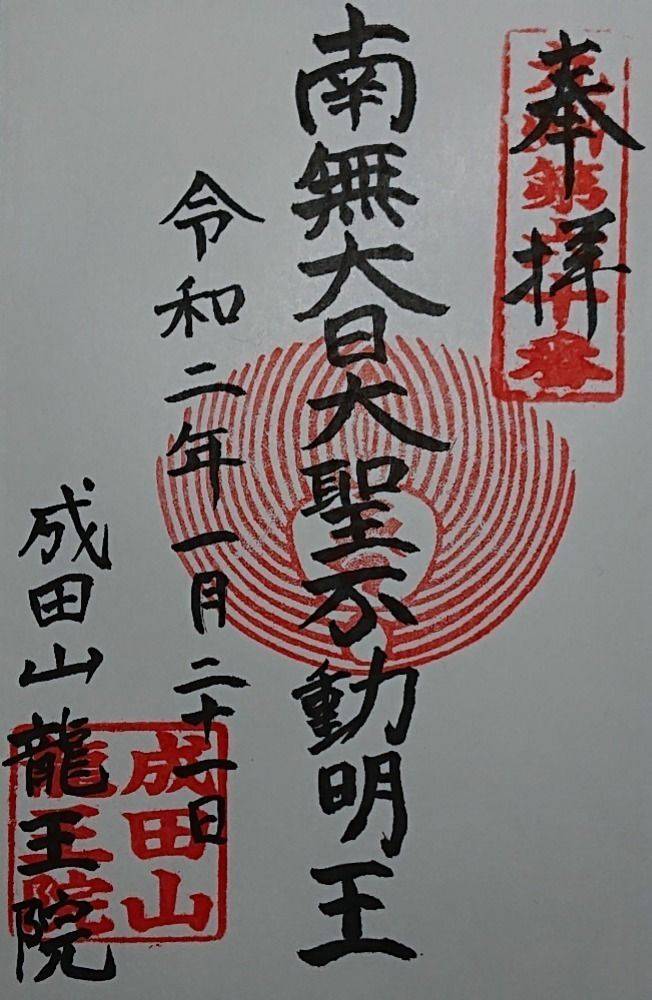 奉拝
南無大日大聖不動明王
令和二年一月二十一日
成田山龍王院
成田山
龍王院